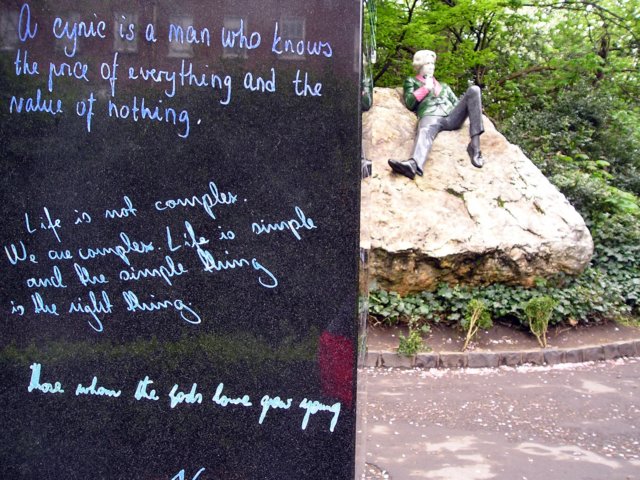 A cynic is a man who knows
the price of everything and the
value of nothing.
Life is not complex.
We are complex. Life is simple
and the simple thing
is the right thing.
Those whom the gods love grow young